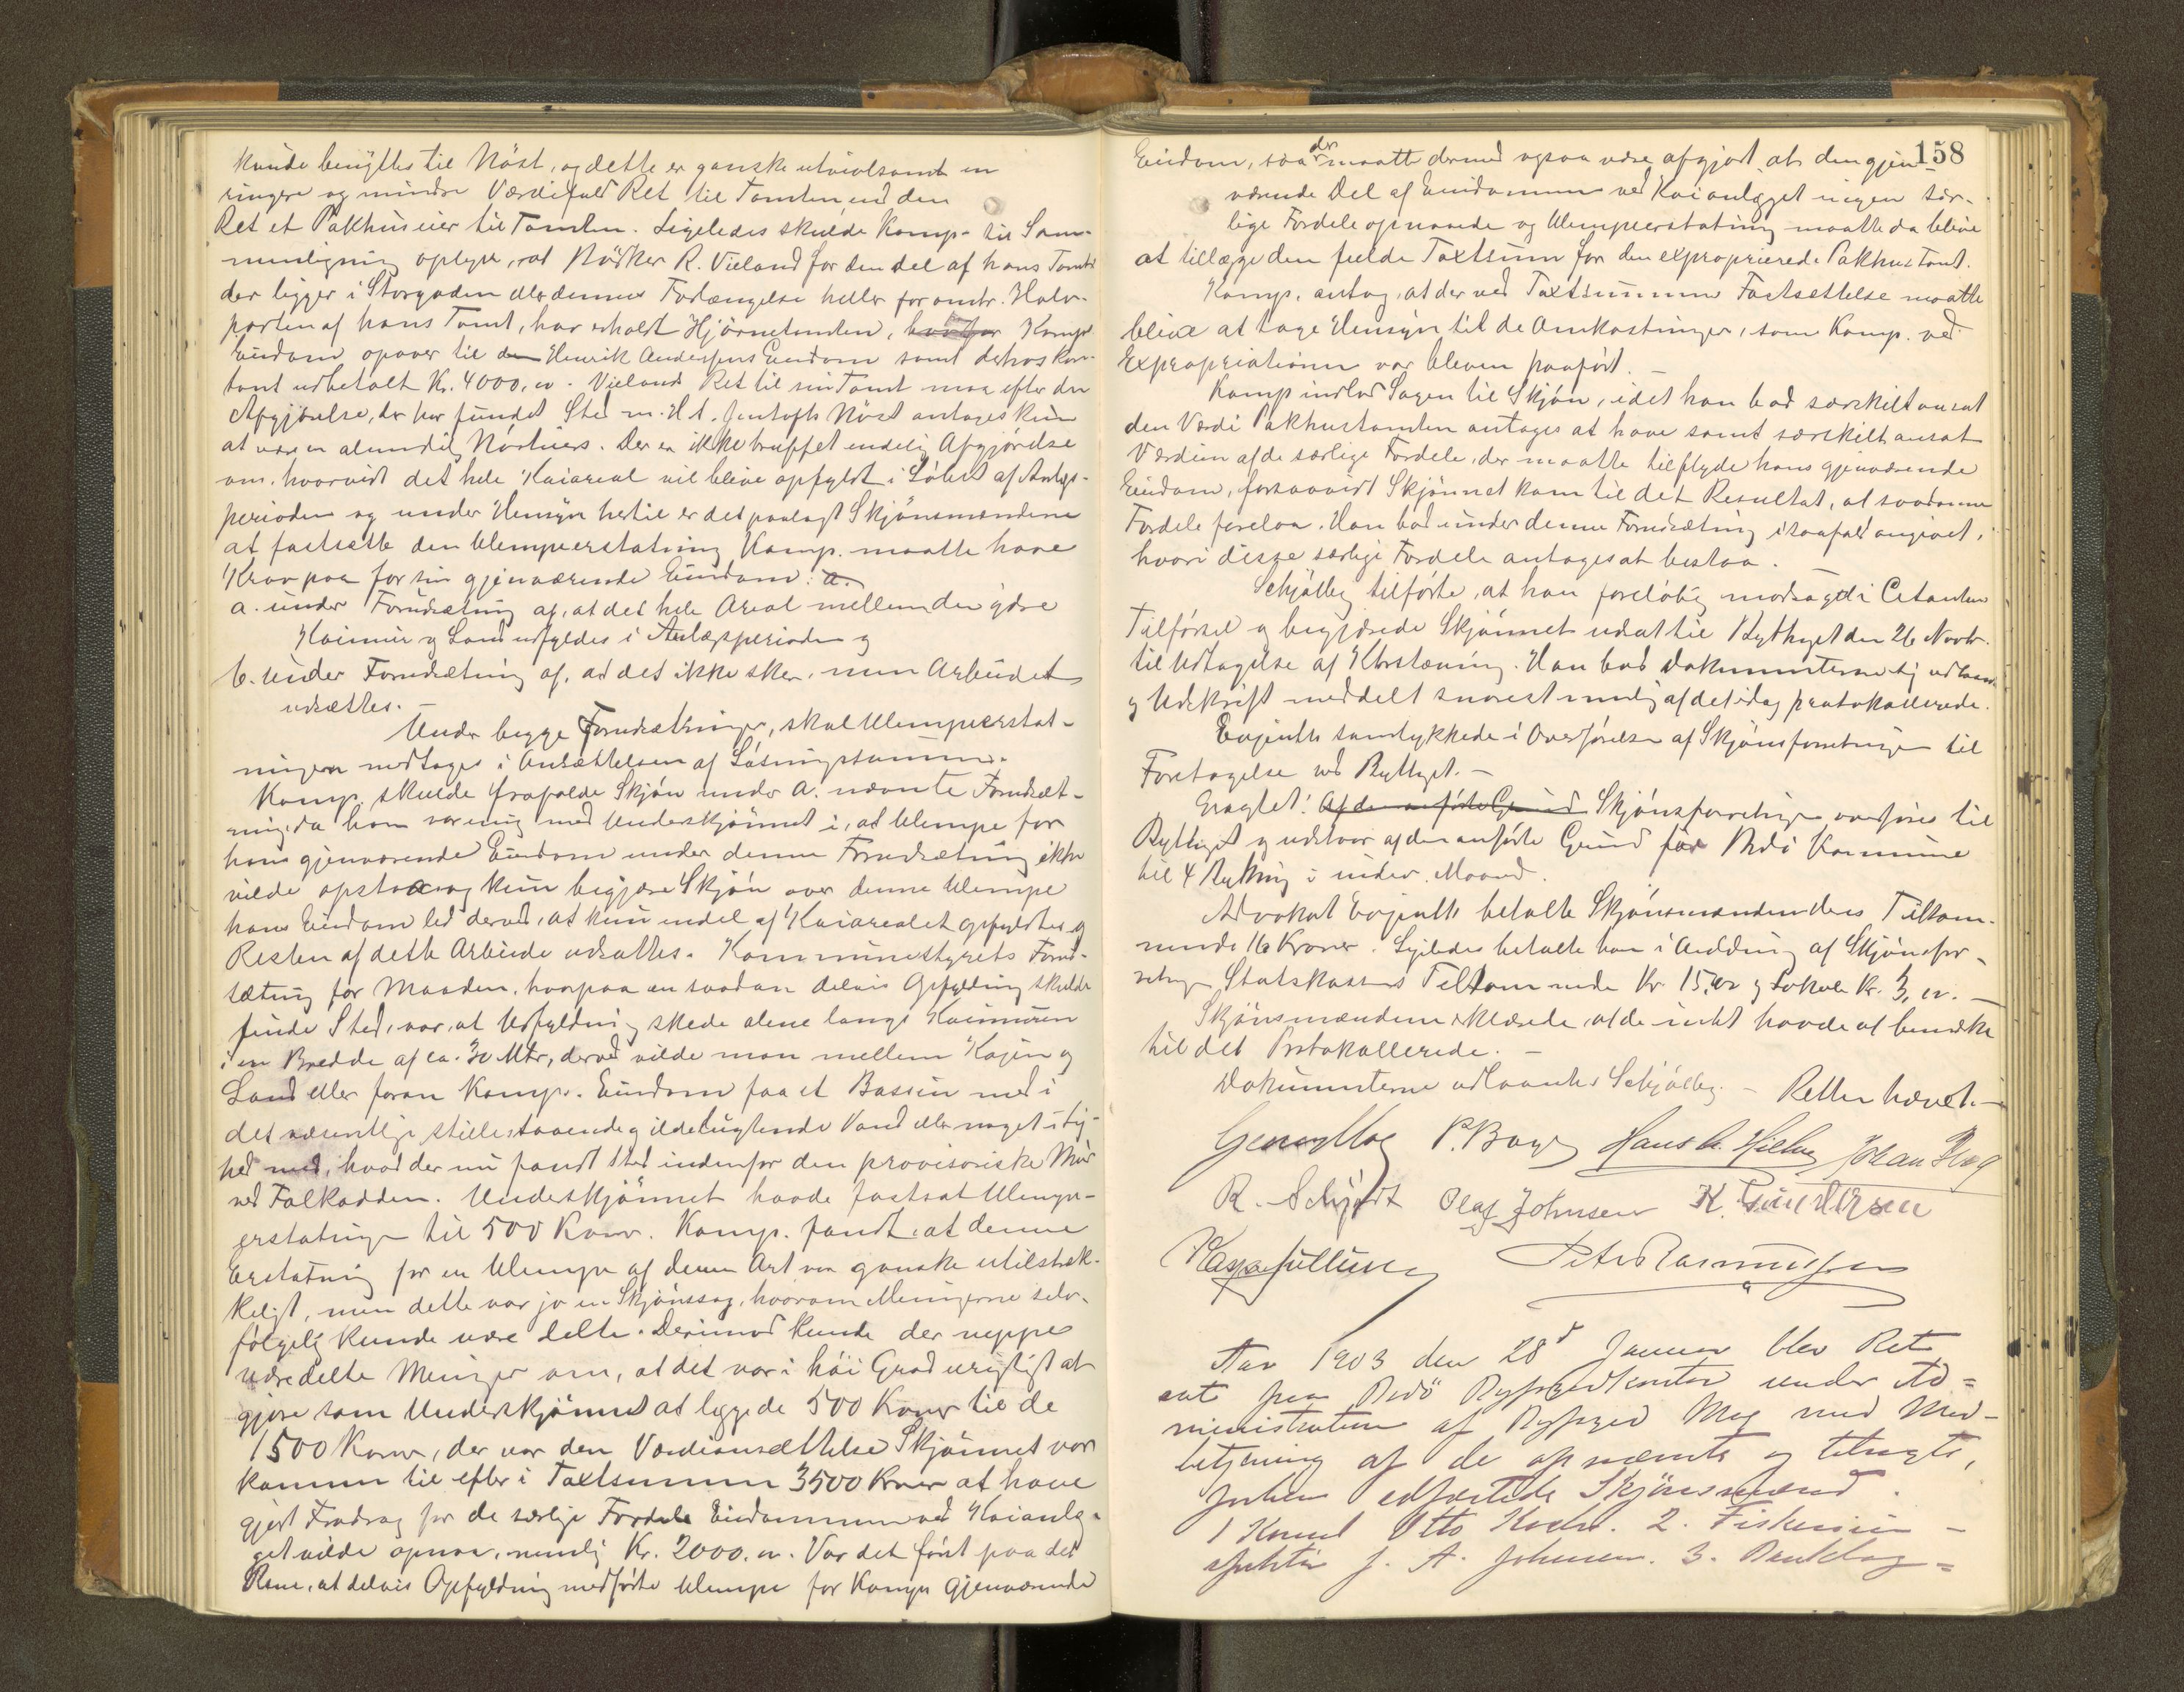 kunde benyttes til Nöst, og dette er ganske utvivlsomt en
ringere og mindre Værdifuld Ret til Tomten end den
Ret et Pakhus eier til Tomten. Ligeledes skulde Komp. til Sam-
menligning oplyse, at Bödker R. Vieland for den del af hans Tomt
der ligger i Storgaden eller dennes Forlængelse heller for omtr. Halv-
parten af hans Tomt, har erholdt Hjörnetomten, Komp.
Eiendom opover til den Henrik Anderssens Eiendom samt derhos kon-
tant udbetalt Kr. 4000,00. Vielands Ret til sin Tomt maa efter den
Afgjörelse, der har fundet Sted m. H. t. Jentofts Nöst antages kun
at være en almindelig Nösteiers. Der er ikke truffet endelig Afgjördse
om, hvorvidt det hele Kaiareal vil blive opfyldt i Löbet af Anlægs-
perioden og under Hensyn hertil er det paalagt Skjönsmændene
at fastsætte den Ulempeerstatning Komp. maatte have
Krav paa for sin gjenværende Eiendom: a.
a. under Forudsætning af, at det hele Areal mellem den ydre
Kaimur og Land udfyldes i Anlægsperioden og
b. under Forudsætning af, at det ikke sker, men Arbeidet
udsættes.
Under begge Forudsætninger, skal Ulempeerstat-
ningen medtages i Ansættelsen af Løsningssummen.
Komp. skulde frafalde Skjön under a. nævnte Forudsæt-
ning, da han var enig med Underskjönnet i, at Ulempe for
hans gjenværende Eiendom under denne Forudsætning ikke
vilde opstaa og kun begjære Skjön over denne Ulempe
hans Eiendom led derved, at kun endel af Kaiarealet opfyldtes og
Resten af dette Arbeide udsattes. Kommunestyrets Forud-
sætning for Maaden, hvorpaa en saadan delvis Opfyldning skulde
finde Sted, var, at Udfyldning skede alene langs Kaimuren
i en Bredde af ca. 30 Mtr, derved vilde man mellem Kajen og
Land eller foran Komps. Eiendom faa et Bassin med i
det væsentlige stillestaaende og ildelugtende Vand eller noget i Lig-
hed med, hvad der nu fandt Sted indenfor den provisoriske Mur
ved Falkodden. Underskjönnet havde fastsat Ulempe-
erstatningen til 500 Kroner. Komp. fandt, at denne
Erstatning for en Ulempe af denne Art var ganske utilstræk-
keligt, men dette var jo en Skjönssag, hvorom Meningerne selv-
fölgelig kunde være delte. Derimod kunde der neppe
være delte Meninger om, at det var i höi Grad urigtigt at
gjøre som Underskjönnet at lægge de 500 Kroner til de
1500 Kroner, der var den Værdiansættelse Skjönnet var
kommen til efter i Taxtsummen 3500 Kroner at have
gjort Fradrag for de særlige Fordele Eiendommen ved Kaianlæ-
get vilde opnaa, nemlig Kr. 2000,00. Var det först paa det
Rene, at delvis Opfyldning medförte Ulempe for Komps gjenværende
158
Eiendom, saa der maatte dermed ogsaa være afgjort, at den gjen-
værende Del af Eiendommen ved Kaianlægget ingen sær-
lige Fordele opnaaede og Ulempeerstatning maatte da blive
at tillægge den fulde Taxtsum for den exproprierede Pakhustomt.
Komp. antog, at der ved Taxtsummens Fastsættelse maatte
blive at tage Hensyn til de Omkostninger, som Komp. ved
Expropriationen var bleven paaført.
Komp indlod Sagen til Skjön, idet han bad særskilt ansat
den Værdi Pakhustomten antages at have samt særskilt ansat
Værdien af de særlige Fordele, der maatte tilflyde hans gjenværende
Eiendom, forsaavidt Skjönnet kom til det Resultat, at saadanne
Fordele forelaa. Han bad under denne Forudsætning i saafald angivet,
hvori disse særlige Fordele antages at bestaa.
Schjölberg tilførte, at han foreløbig modsagde Citanten
Tilførsel og begjærede Skjönnet udsat til Bythinget den 26 Novbr.
til Udtagelse af Kstævning. Han bad Dokumenterne sig udlaant
og Udskrift meddelt snarest mulig af det idag protokollerede.
Evjenth samtykkede i Overförelse af Skjönsforretningen til
Foretagelse ved Bythinget.
Eragtet: Af den anførte Grund Skjönsforretningen overføres til
Bythinget og udstaar af den anførte Grund for Bodö Kommune
til 4 Rykning i indev. Maaned.
Advokat Evjenth betalte Skjönsmændenes Tilkom-
mende 16 Kroner. Ligeledes betalte han i Anledning af Skjönsfor-
retning Statskassens Tilkommende Kr. 15,00 og Lokale Kr. 3,00.
Skjönsmændene erklærede, at de intet havde at bemærke
til det Protokollerede.
Dokumenterne udlaantes Schjölberg. - Retten hævet. -
P. Boye Hans A. Johan
R. Schjödt Olaf Johnsen K. Gundersen
Peter Rasmussen
Aar 1903 den 28d Januar blev Ret
sat paa Bodö Byfogedkontor under Ad=
ministration af Byfoged Moe med Med-
betjening af de opnævnte og tilsagte,
forhen edfæstede Skjönsmænd.
1 Konsul Otto Koch. 2. Fiskeriin-
spektör J. A. Johnsen. 3. =